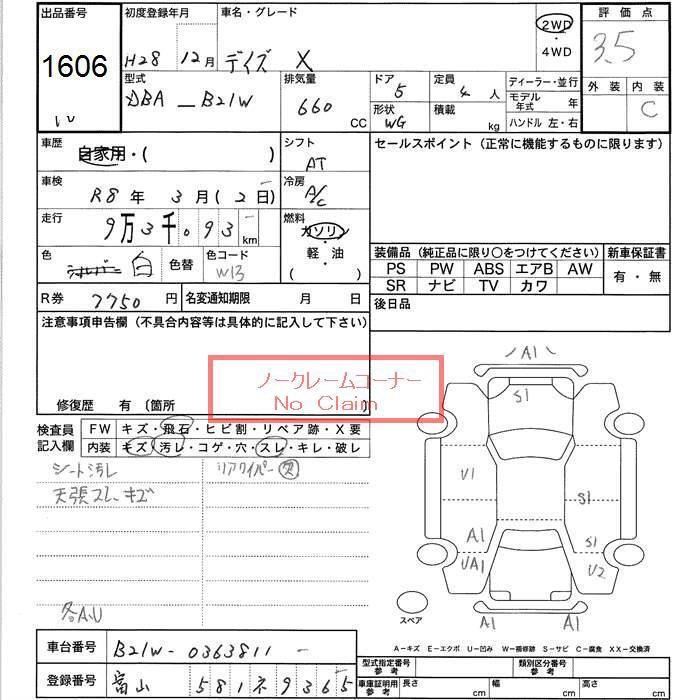 出品番号
1606
初度登録年月
H28 12月
車名・グレード
デイズ X
2WD
・
4WD
評価点
3.5
外装 内装
C
型式
DBA - B21W
排気量
660 CC
ドア
5
形状
WG
定員
4 人
積載
kg
ディーラー・並行
モデル年式 年
ハンドル 左・右
車歴
自家用・( )
シフト
AT
セールスポイント (正常に機能するものに限ります)
車検
R8年 3月(2日)
冷房
A/C
走行
9万3千093 km
燃料
ガソリン
・
軽・油
( )
色
白
色替
色コード
W13
装備品 (純正品に限り○をつけてください)
新車保証書
PS PW ABS エアB AW
SR ナビ TV カワ
有・無
R券 7750 円
名変通知期限 月 日
後日品
注意事項申告欄 (不具合内容等は具体的に記入して下さい)
ノークレームコーナー
No Claim
修復歴 有 〔箇所
検査員記入欄
FW キズ・飛石・ヒビ割・リペア跡・X要
内装 キズ・汚レ・コゲ・穴・スレ・キレ・破レ
シート汚レ
リアワイパー 欠
天張スレ、キズ
各A.U
A1
S1
V1
S1
A1
S1
UA1
U2
A1
A1
スペア
A-キズ E-エクボ U-凹み W-補修跡 S-サビ C-腐食 XX-交換済
車台番号 B21W-0363811-
登録番号 富山 581 ネ 9365
型式指定番号 参考
類別区分番号 参考
車庫証明用 参考
長さ cm
幅 cm
高さ cm